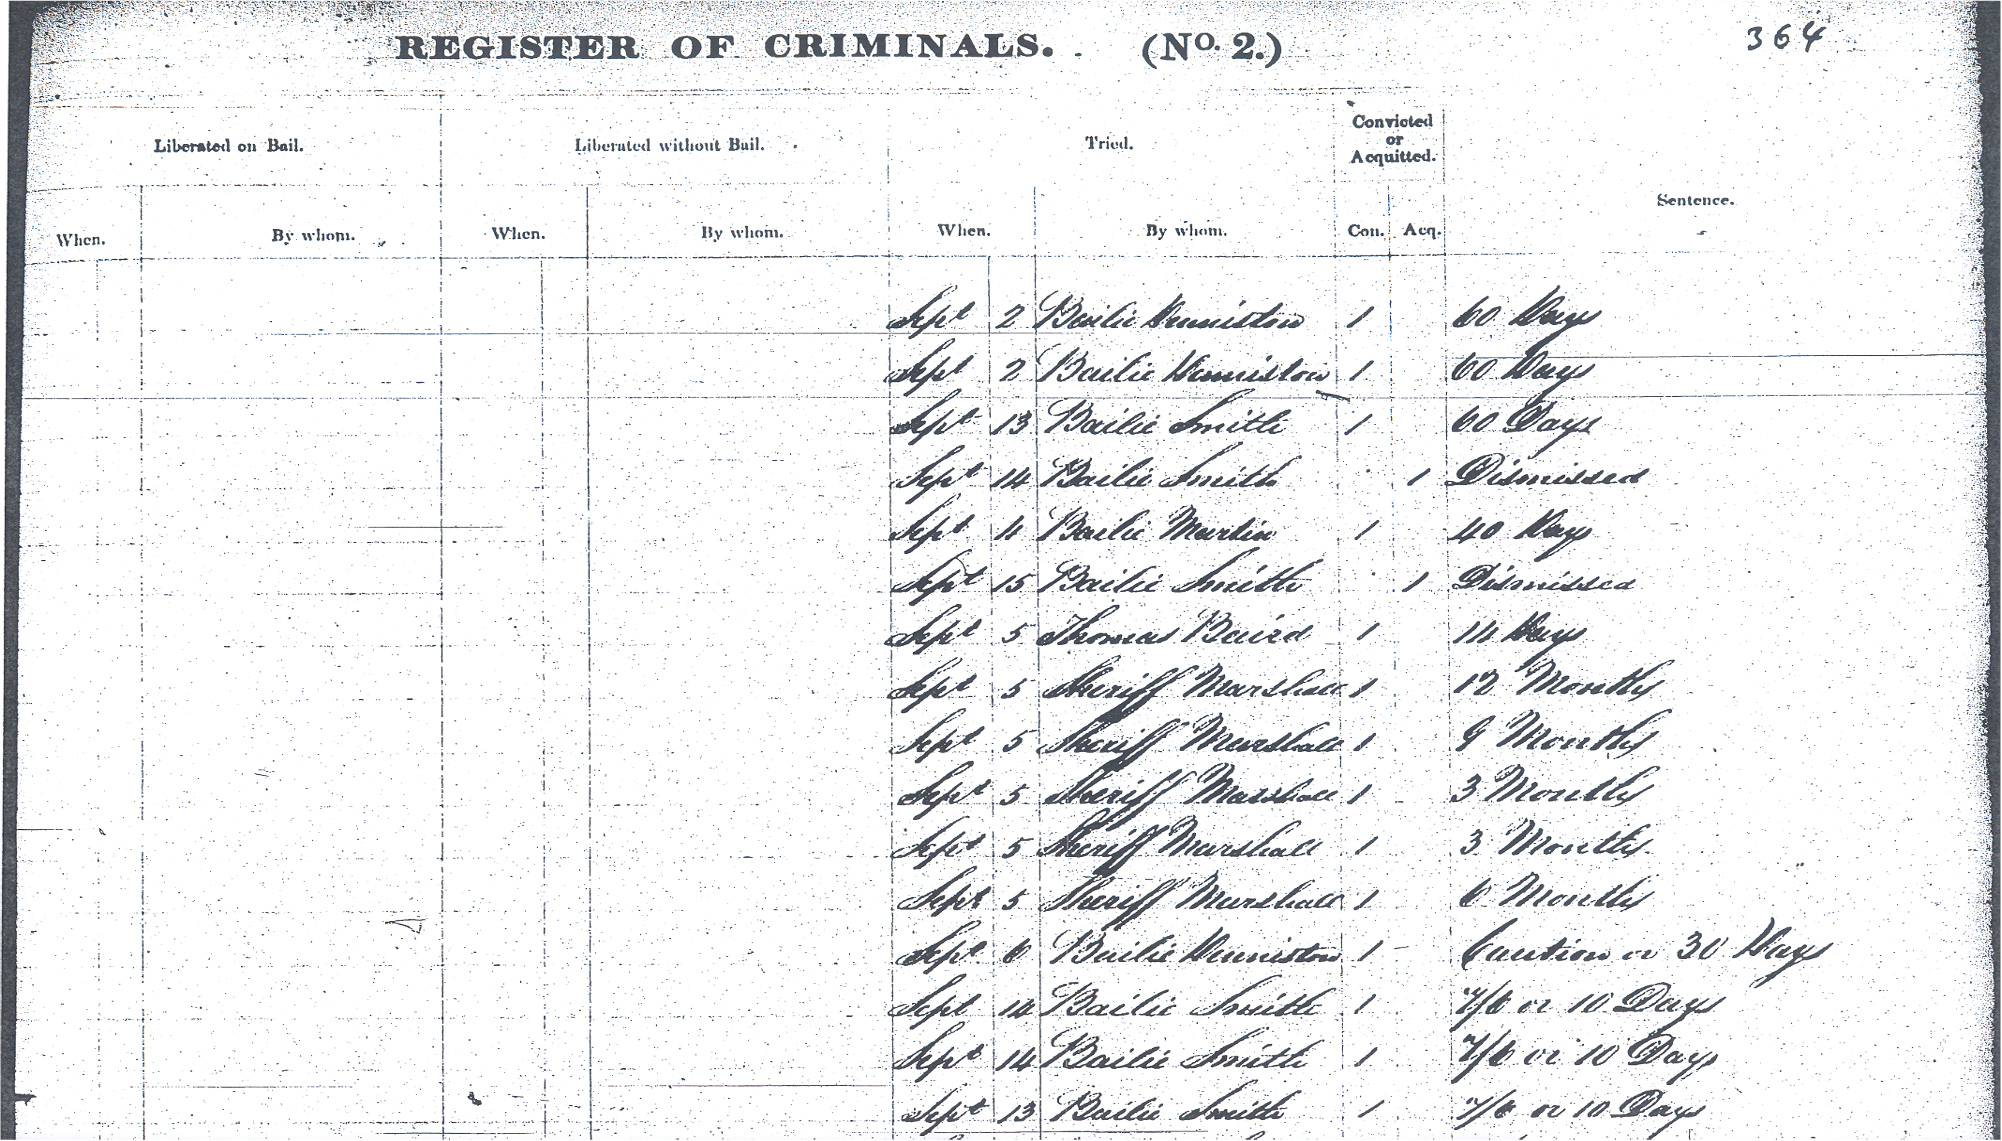 REGISTER OF CRIMINALS. (No. 2.) 364
Liberated on Bail. Liberated without Bail. Tried. Convicted or Acquitted. Sentence.
When. By whom. When. By whom. When. By whom. Con. Acq.
Sept 2 Bailie Denniston 1 60 Days
Sept 2 Bailie Denniston 1 60 Days
Sept 13 Bailie Smith 1 60 Days
Sept 14 Bailie Smith 1 Dismissed
Sept 4 Bailie Martin 1 40 Days
Sept 15 Bailie Smith 1 Dismissed
Sept 5 Thomas Baird 1 14 Days
Sept 5 Sheriff Marshall 1 12 Months
Sept 5 Sheriff Marshall 1 9 Months
Sept 5 Sheriff Marshall 1 3 Months
Sept 5 Sheriff Marshall 1 3 Months
Sept 5 Sheriff Marshall 1 6 Months
Sept 6 Bailie Denniston 1 Caution or 30 Days
Sept 14 Bailie Smith 1 7/6 or 10 Days
Sept 14 Bailie Smith 1 7/6 or 10 Days
Sept 13 Bailie Smith 1 7/6 or 10 Days